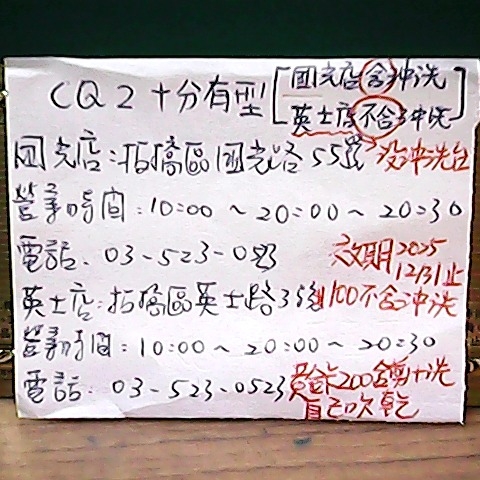 CQ2十分有型[國光店含沖洗
英士店不含沖洗]
国光店:板橋區国光路55號 没沖洗台
營業時間:10:00~20:00~20:30
電話:03-523-0
效期2025
12/31止
英士店:板橋區英士路35號 100不含沖洗
營業時間:10:00~20:00~20:30
電話:03-523-0523
200含剪+洗
自己吹乾